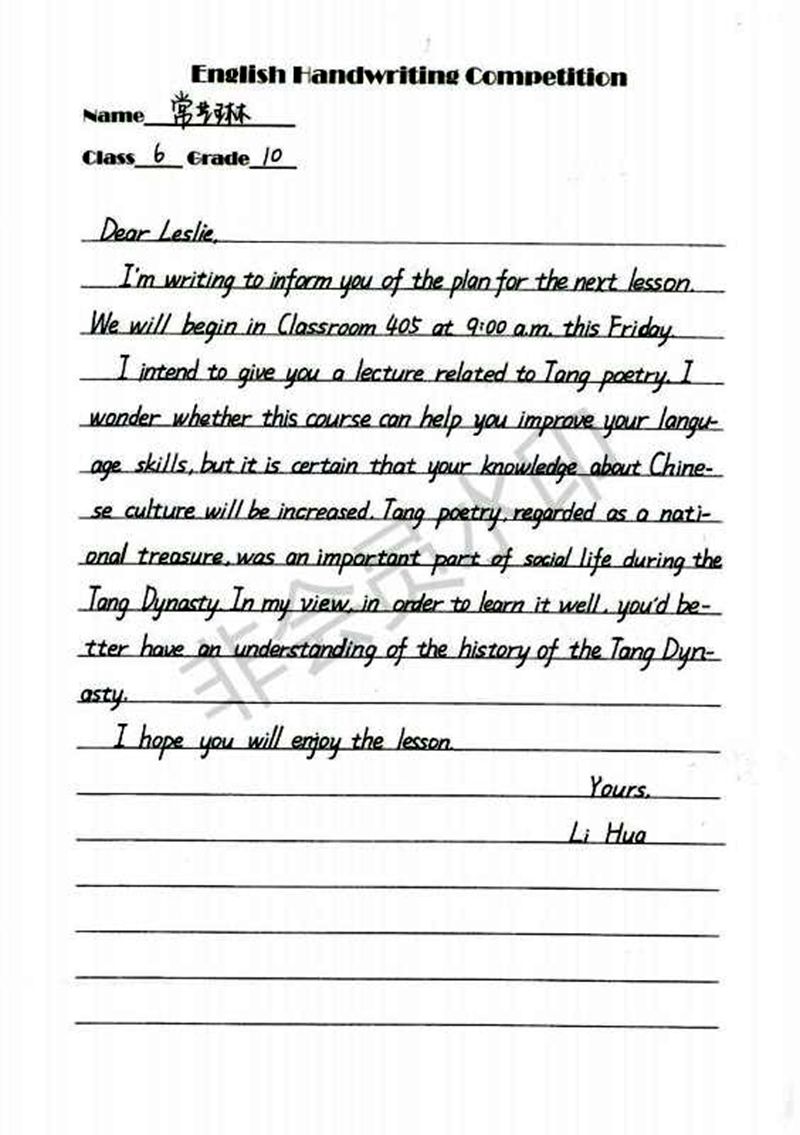 English Handwriting Competition
Name 常梦琳
Class 6 Grade 10
Dear Leslie,
I'm writing to inform you of the plan for the next lesson.
We will begin in Classroom 405 at 9:00 a.m. this Friday.
I intend to give you a lecture related to Tang poetry. I
wonder whether this course can help you improve your langu-
age skills, but it is certain that your knowledge about Chine-
se culture will be increased. Tang poetry, regarded as a nati-
onal treasure, was an important part of social life during the
Tang Dynasty. In my view, in order to learn it well, you'd be-
tter have an understanding of the history of the Tang Dyn-
asty.
I hope you will enjoy the lesson.
Yours,
Li Hua
非会员水印